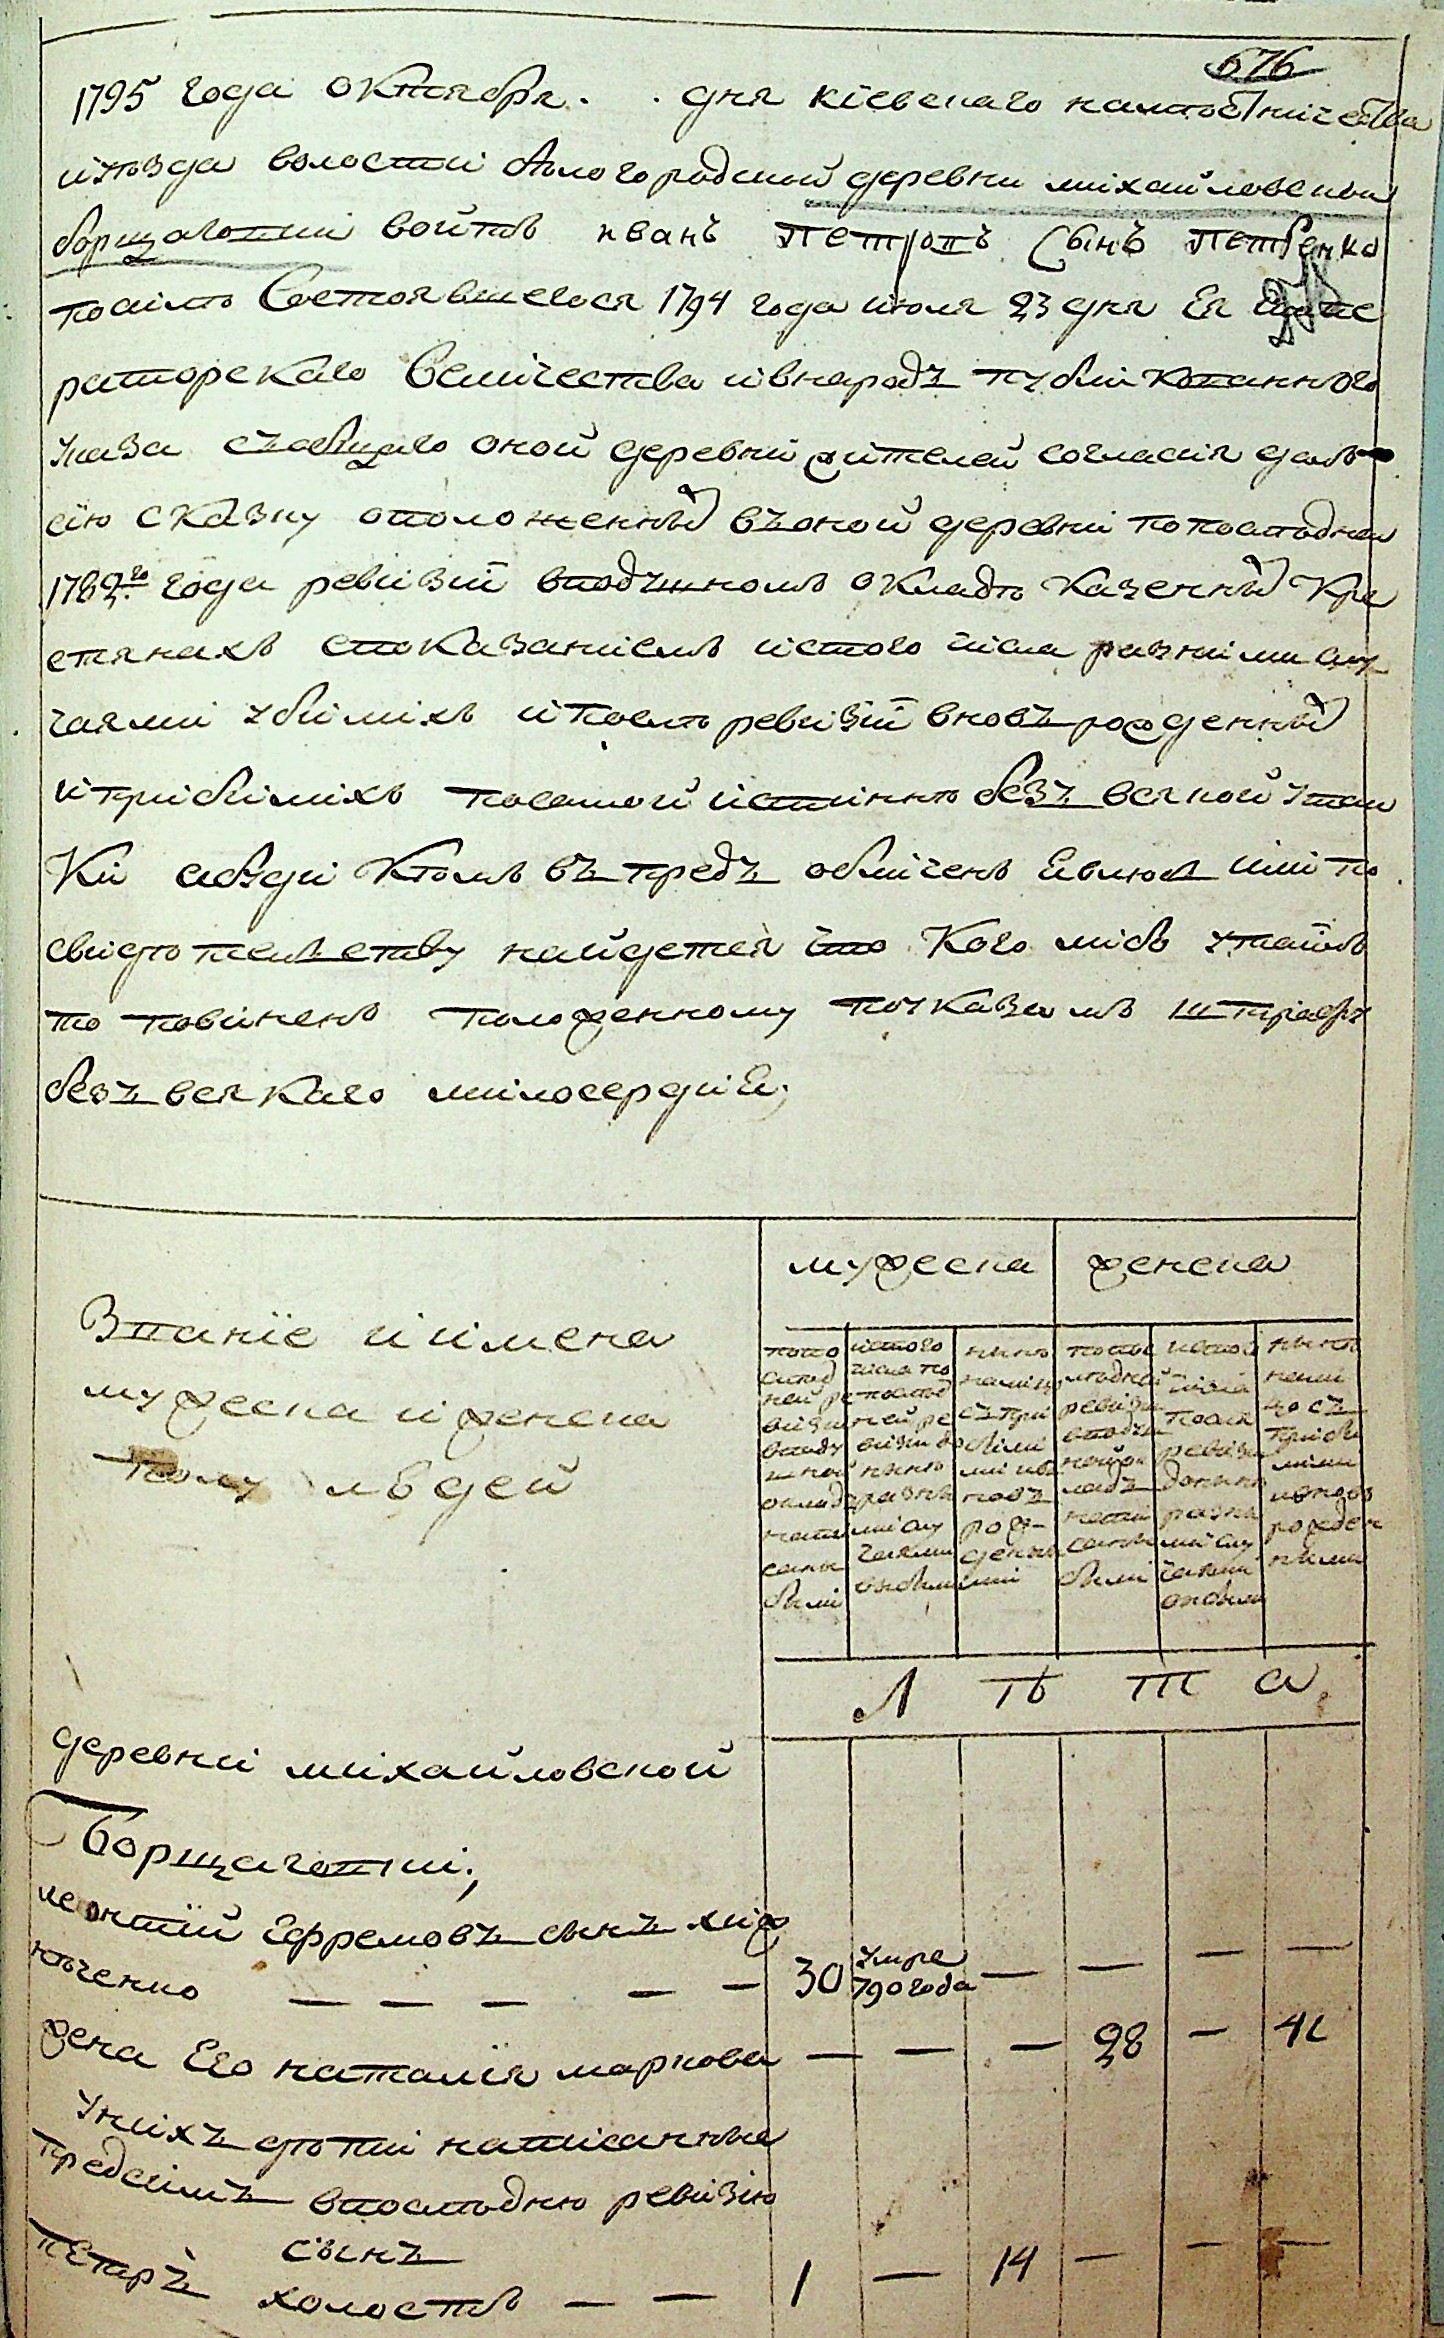 676
1795 года октября . . дня кіевскаго намѣстничества
и уѣзда волости бѣлогородской деревни михайловской
борщаговки войтъ иванъ петровъ сынъ петренко
посилѣ состоявшегося 1794 года июля 23 дня Ея импе
раторскаго величества и внародъ публикованнаго
указа съ общаго оной деревни жителей согласія далъ
сію сказку о положенныхъ въ оной деревни по последней
1782го года ревизіи вподушномъ окладѣ казенныхъ кре
стянахъ спо казаніемъ истого числа разними слу
чаями убилихъ и послѣ ревизіи вновь рожденныхъ
и прибилихъ по самой истиннѣ безъ всякой утаи
ки а буди ктомъ въ предъ обличенъ явлюсь или по
свидѣтельству найдется что кого либъ утаилъ
то повиненъ положенному поуказамъ штрафу
безъ всякаго милосердія;
Званіе и имена
мужеска и женска
полу людей
мужеска женска
попо следней ревизіи вподушной окладъ написаны были
истого числа по последней ревизіи до нынѣ разними случаями выбыли
нынѣ налицо съ прибилими и вновь рожденными
попоследней ревизіи вподушной окладъ написаны были
истого числа послѣ ревизіи донынѣ разними случаями выбыли
нынѣ налицо съ прибилими и вновь рожденнима
Л ѣ т а
деревни михайловской
Борщаговки;
леонтій Ефремовъ сынъ хиж
няченко — — — — — 30 умре 790 года — — — —
жена его наталія маркова — — — 28 — 41
У нихъ дѣти написанные
предсимъ впоследнюю ревизію
сынъ
петръ холостъ — — 1 — 14 — — —